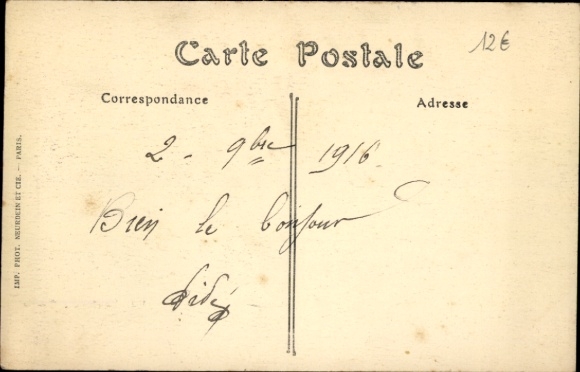 12€
Carte Postale
Correspondance
Adresse
2 - 9bre 1916
Bien le bonjour
Didé
IMP. PHOT. NEURDEIN ET CIE. — PARIS.